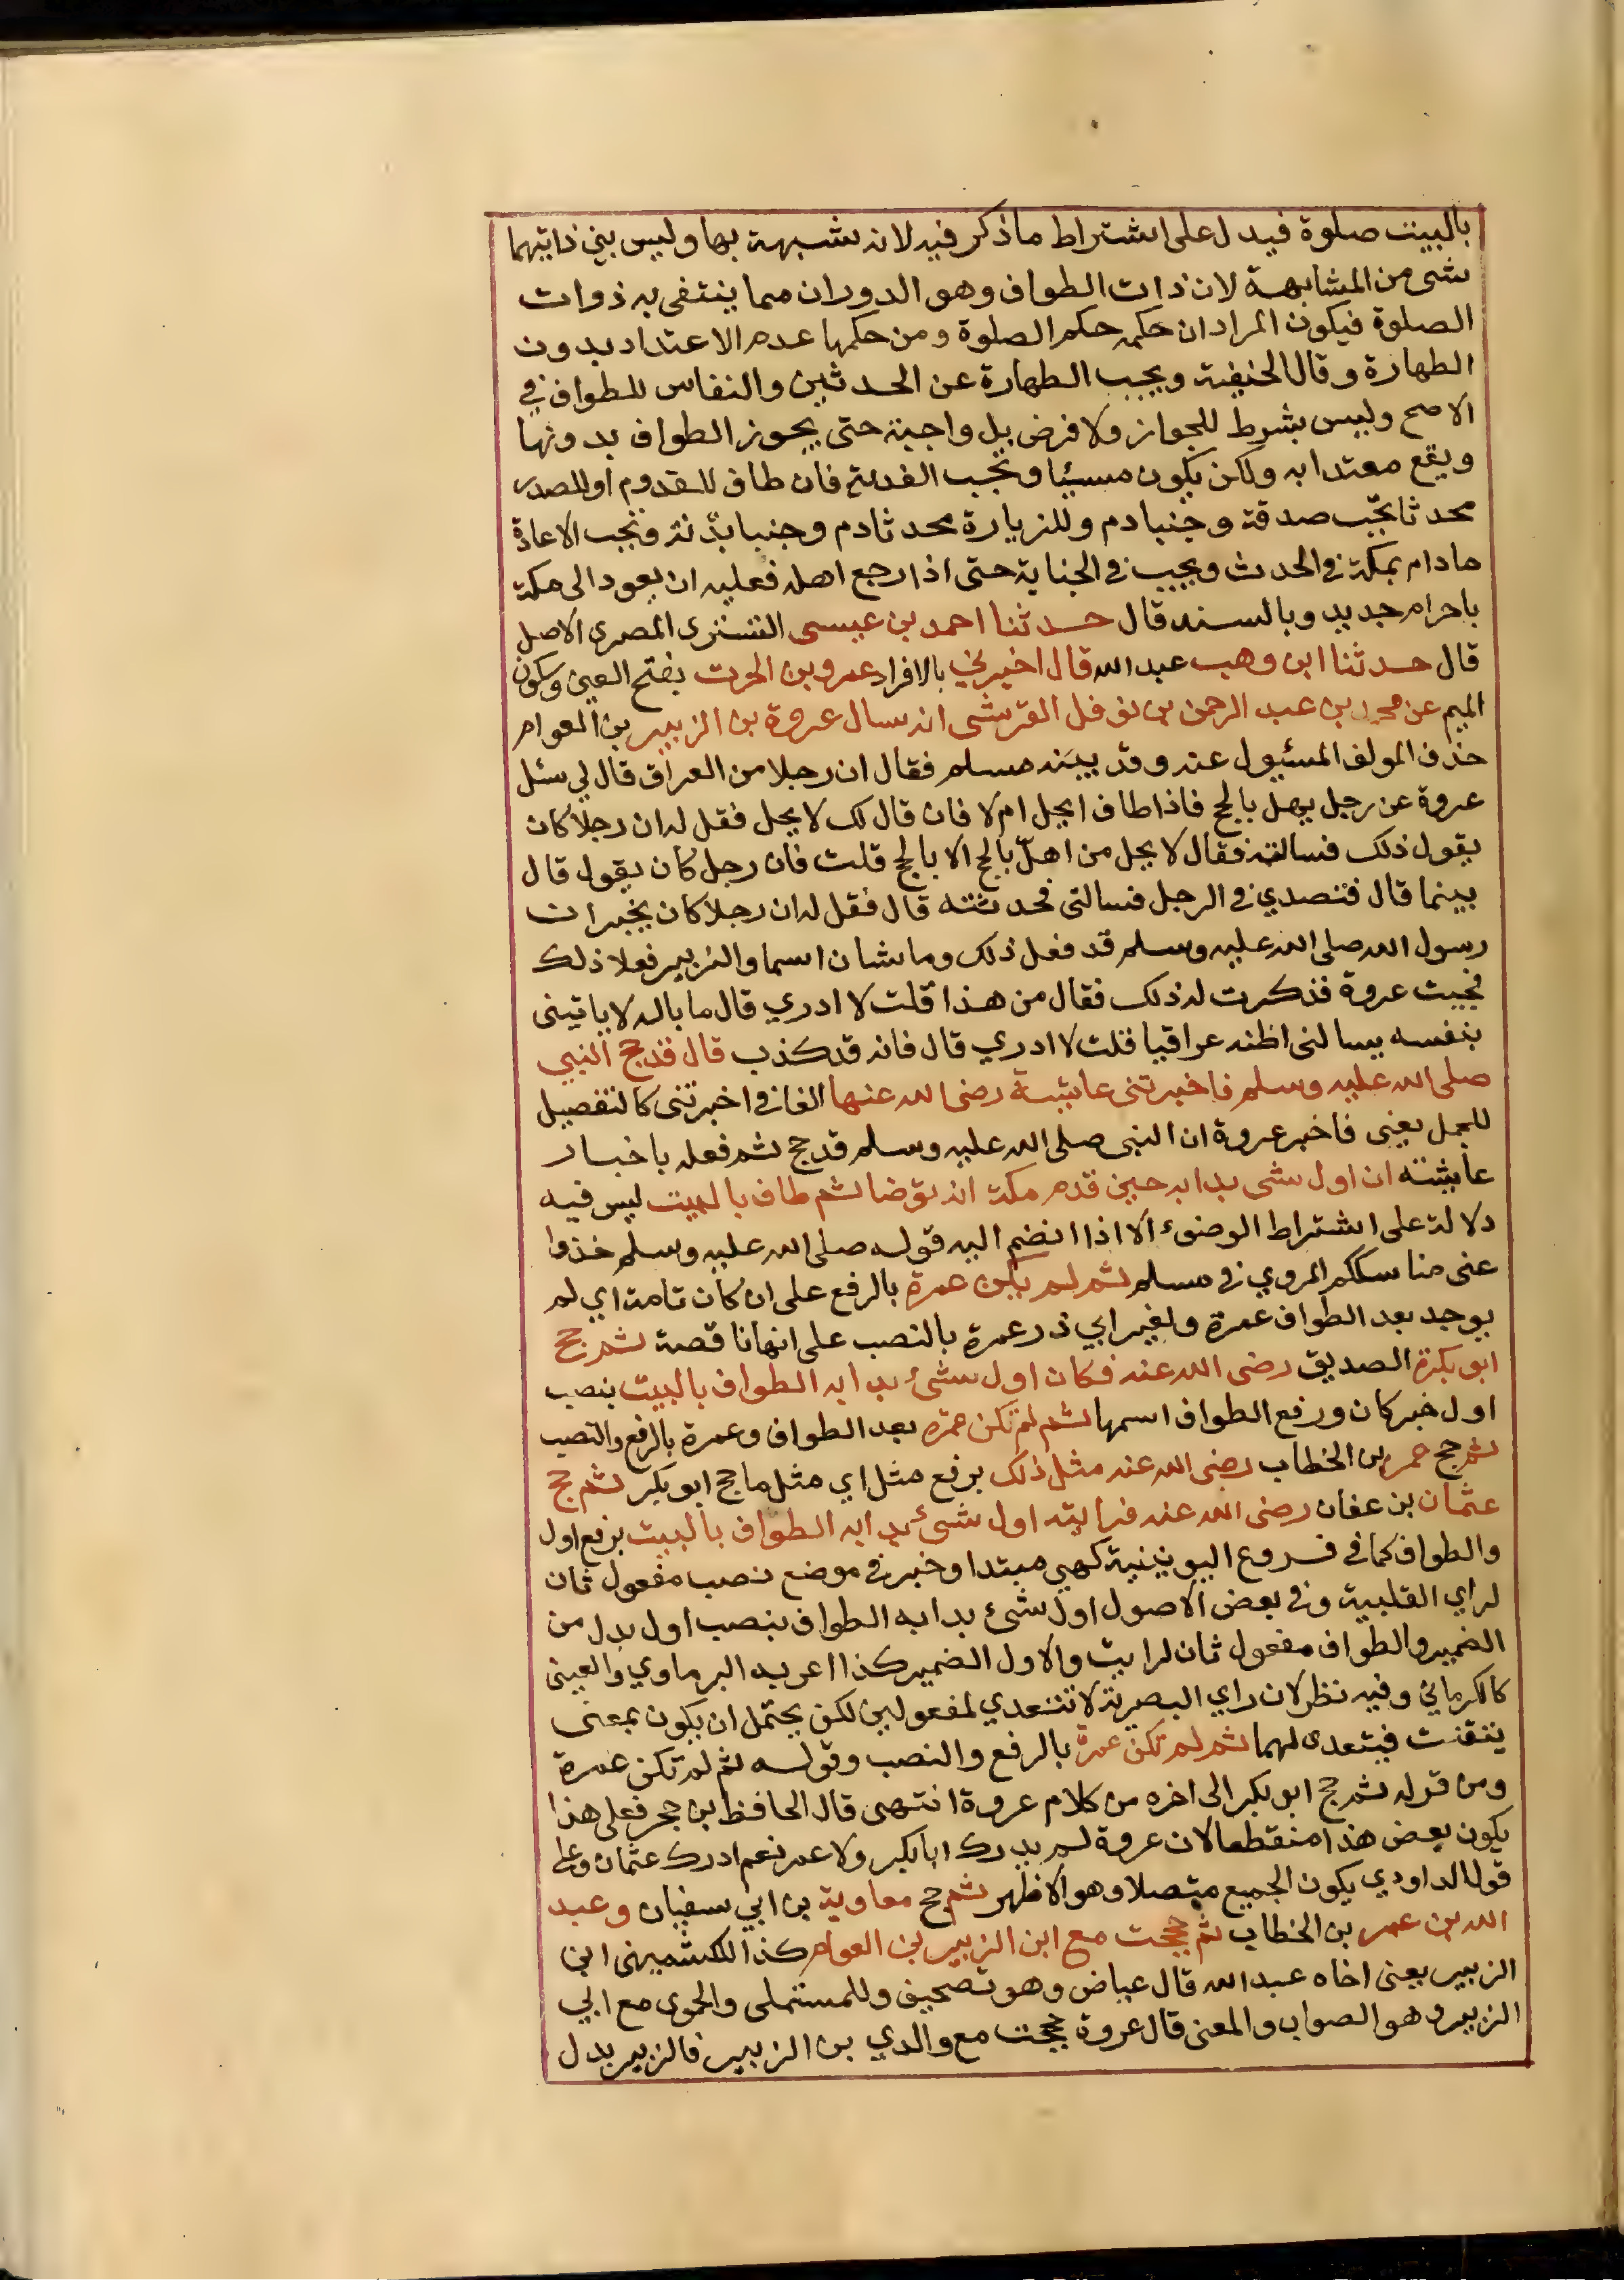 بالبيت صلوة فيدل على اشتراط ما ذكر فيه لانه شبهة بها وليس بين ذاتيهما
شى من المشابهة لان ذات الطواف وهو الدوران مما ينتفى به ذوات
الصلوة فيكون المراد ان حكمه حكم الصلوة ومن حكمها عدم الاعتداد بدون
الطهارة وقال الحنيفية ويجب الطهارة عن الحدثين والنفاس للطواف في
الاصح وليس بشرط للجواز ولا فرض بل واجبة حتى يجوز الطواف بدونها
ويقع معتدا به ولكن يكون مسيئا وتجب الفدية فان طاف للقدوم او للصدر
محدثا تجب صدقة وجنبا دم وللزيارة محدثا دم وجنبا بدنة وتجب الاعادة
مادام بمكة في الحدث ويجب في الجناية حتى اذا رجع اهله فعليه ان يعود الى مكة
باحرام جديد وبالسند قال حدثنا احمد بن عيسى التسترى المصرى الاصل
قال حدثنا ابن وهب عبد الله قال اخبرني بالافراد عمرو بن الحرث بفتح العين وسكون
الميم عن محمد بن عبد الرحمن بن نوفل القرشى انه سال عروة بن الزبير بن العوام
حذف المولف المسئول عنه وقد بينه مسلم فقال ان رجلا من العراق قال لي سئل
عروة عن رجل يهل بالحج فاذا طاف ايحل ام لا فان قال لك لا يحل فقل له ان رجلا كان
يقول ذلك فسالته فقال لا يحل من اهلّ بالحج الا بالحج قلت فان رجل كان يقول قال
بينما قال فتصدي في الرجل فسالنى فحدثته قال فقل له ان رجلا كان يخبر ان
رسول الله صلى الله عليه وسلم قد فعل ذلك وما شان اسما والزبير فعلا ذلك
فجيت عروة فذكرت له ذلك فقال من هذا قلت لا ادري قال ما باله لا ياتينى
بنفسه يسالنى اظنه عراقيا قلت لا ادري قال فانه قد كذب قال قد حج النبي
صلى الله عليه وسلم فاخبرتنى عايشة رضى الله عنها الفا في اخبرتنى كالتفصيل
للمجمل يعنى فاخبر عروة ان النبى صلى الله عليه وسلم قد حج ثم فعله باخبار
عايشة ان اول شى بدا به حين قدم مكة انه توضا ثم طاف بالبيت ليس فيه
دلالة على اشتراط الوضوء الا اذا انضم اليه قوله صلى الله عليه وسلم خذوا
عنى مناسككم المروي في مسلم ثم لم يكن عمرة بالرفع على ان كان تامة اي لم
يوجد بعد الطواف عمرة ولغير ابي ذر عمرة بالنصب على انها ناقصة ثم حج
ابو بكرة الصديق رضى الله عنه فكان اول شئ بدا به الطواف بالبيت بنصب
اول خبر كان ورفع الطواف اسمها ثم لم تكن عمرة بعد الطواف وعمرة بالرفع والنصب
ثم حج عمر بن الخطاب رضى الله عنه مثل ذلك برفع مثل اي مثل ما حج ابو بكر ثم حج
عثمان بن عفان رضى الله عنه فرايته اول شئ بدا به الطواف بالبيت برفع اول
والطواف كما في فروع اليونينية كهي مبتدا وخبر في موضع نصب مفعول ثان
لراي القلبية وفي بعض الاصول اول شئ بدا به الطواف بنصب اول بدل من
الضمير والطواف مفعول ثان لرايت والاول الضمير كذا اعربه البرماوي والعينى
كالكرماني وفيه نظر لان راي البصرية لا تتعدي لمفعولين لكن يحتمل ان يكون بمعنى
يتقنت فيتعدى لهما ثم لم تكن عمرة بالرفع والنصب وقوله ثم لم تكن عمرة
ومن قوله ثم حج ابو بكر الى اخره من كلام عروة انتهى قال الحافظ بن حجر فعلى هذا
يكون بعض هذا منقطعا لان عروة لم يدرك ابا بكر ولا عمر نعم ادرك عثمان وعلى
قول الداودي يكون الجميع متصلا وهو الاظهر ثم حج معاوية بن ابي سفيان وعبد
الله بن عمر بن الخطاب ثم حججت مع ابن الزبير بن العوام كذا للكشميهنى ابن
الزبير يعنى اخاه عبد الله قال عياض وهو تصحيف وللمستملى والحموى مع ابي
الزبير وهو الصواب والمعنى قال عروة حججت مع والدي بن الزبير فالزبير بدل